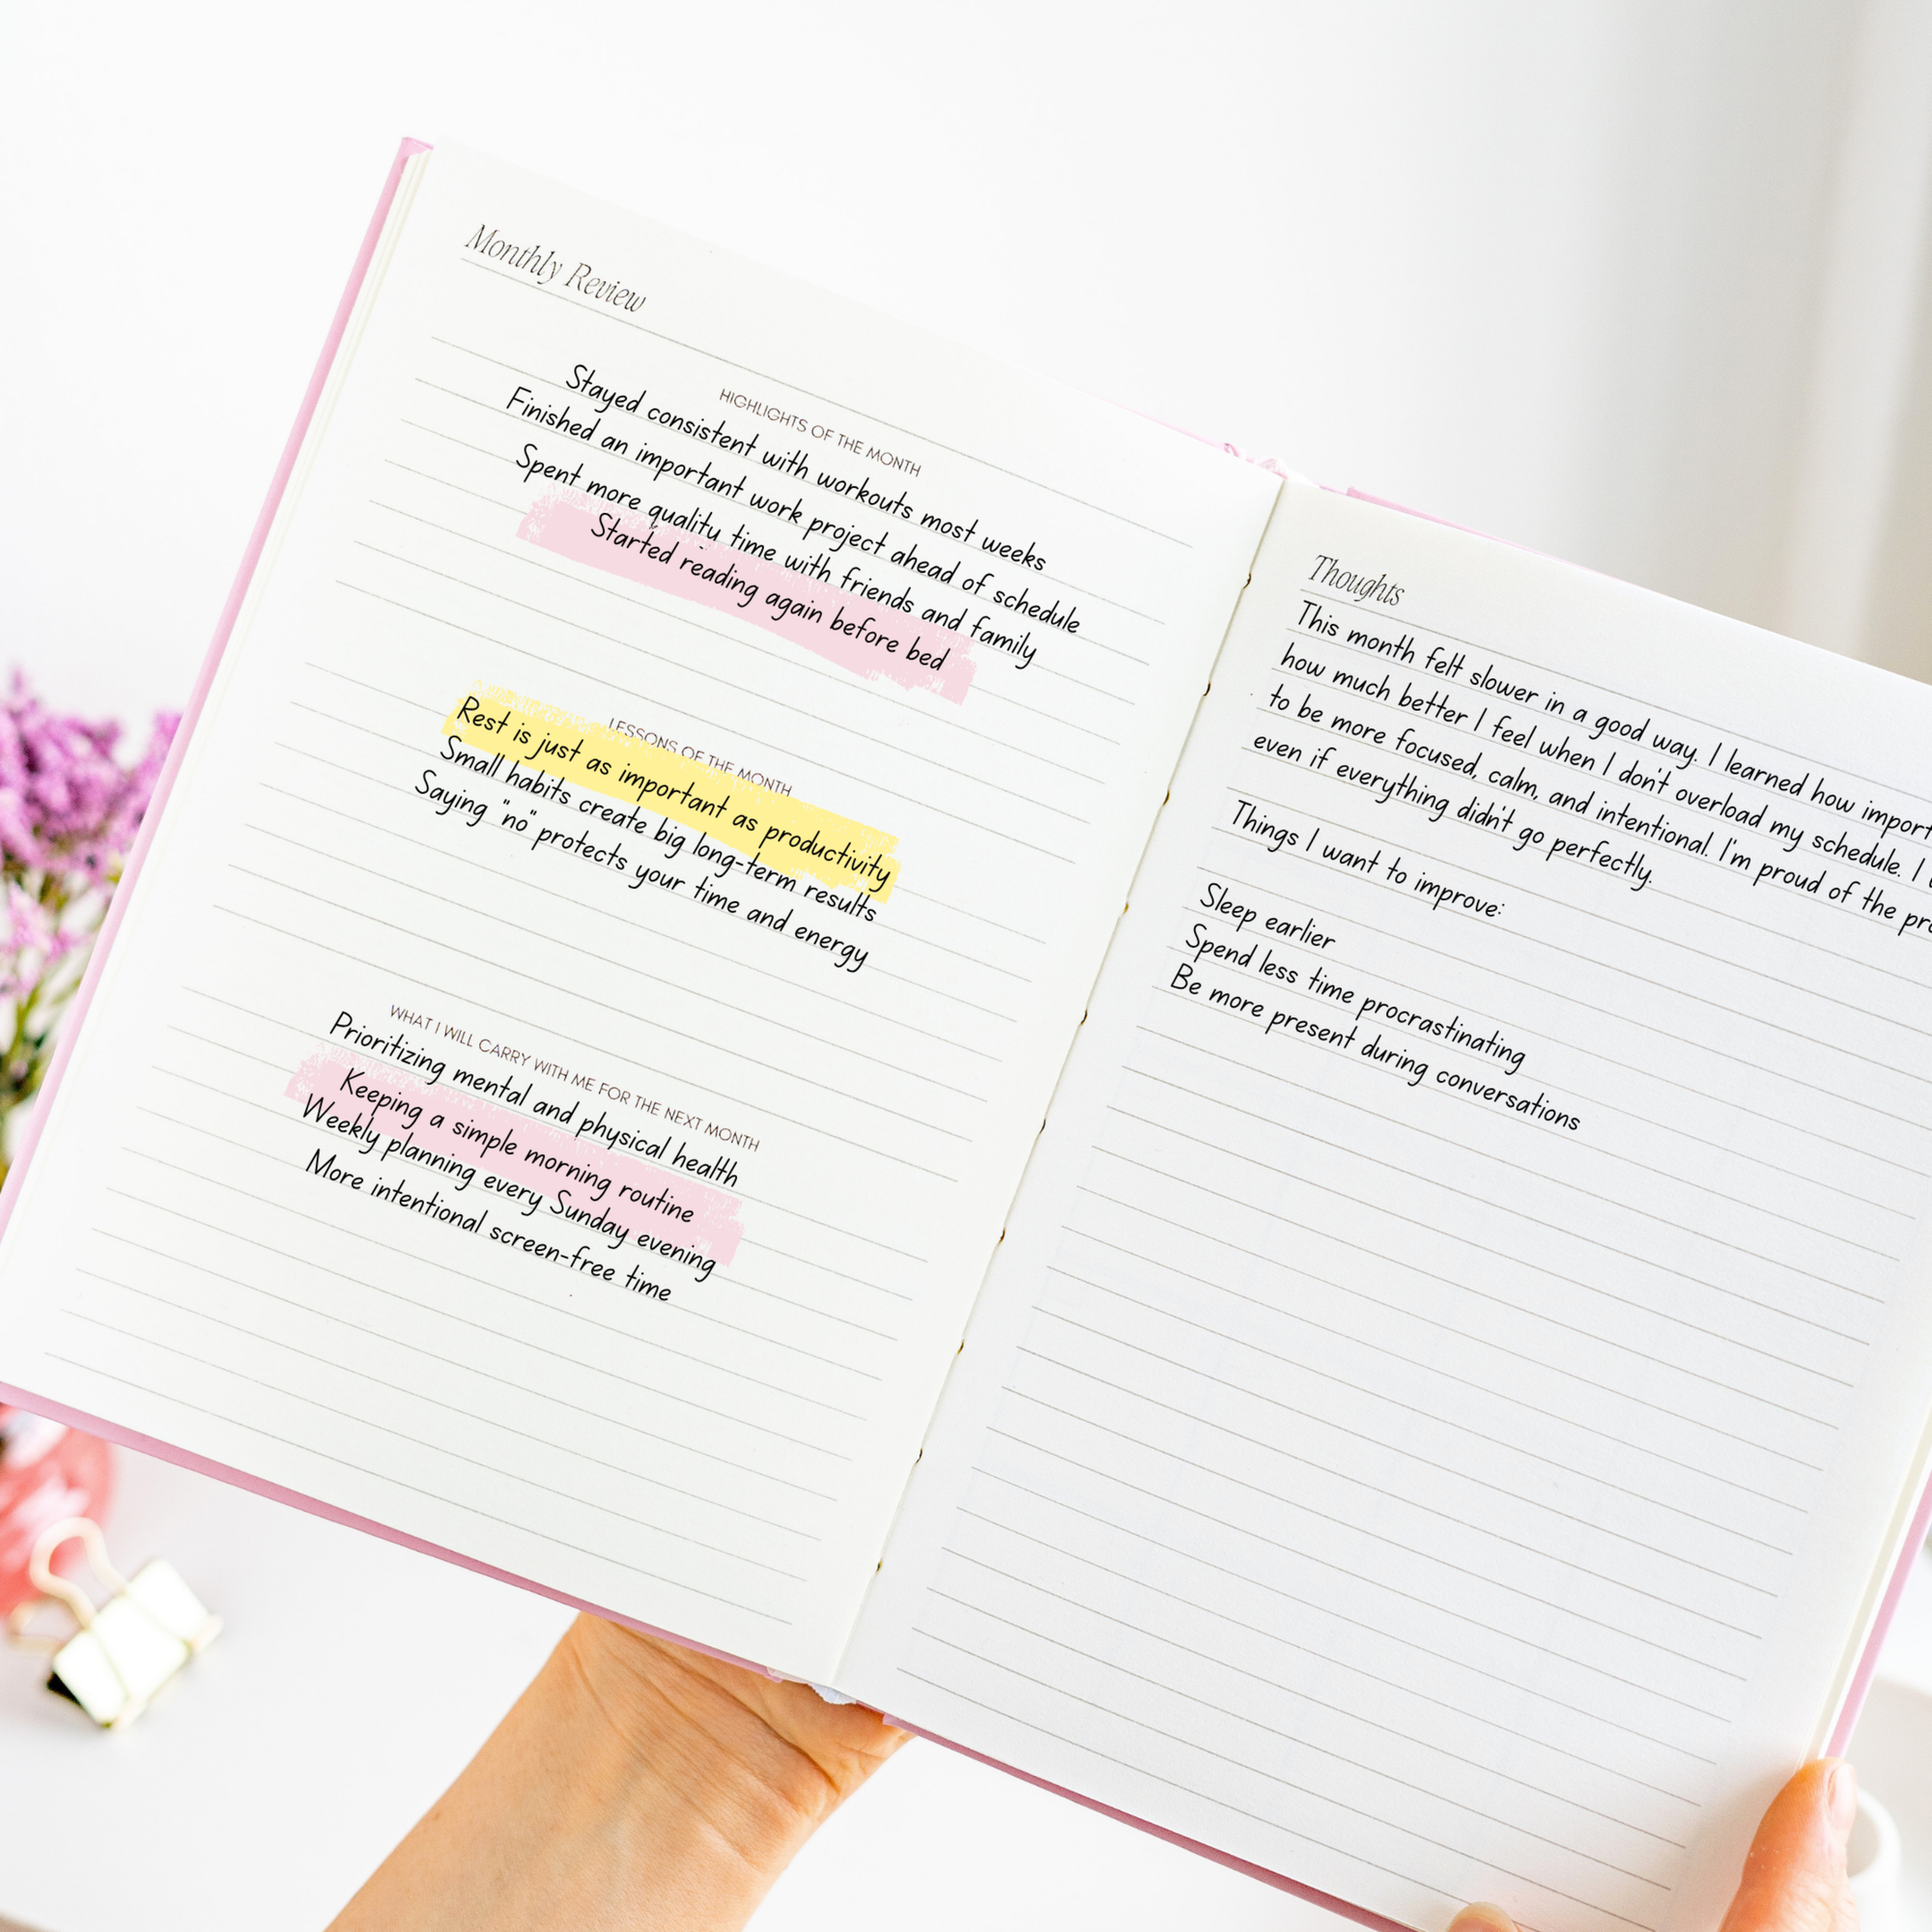 Monthly Review
HIGHLIGHTS OF THE MONTH
Stayed consistent with workouts most weeks
Finished an important work project ahead of schedule
Spent more quality time with friends and family
Started reading again before bed
LESSONS OF THE MONTH
Rest is just as important as productivity
Small habits create big long-term results
Saying "no" protects your time and energy
WHAT I WILL CARRY WITH ME FOR THE NEXT MONTH
Prioritizing mental and physical health
Keeping a simple morning routine
Weekly planning every Sunday evening
More intentional screen-free time
Thoughts
This month felt slower in a good way. I learned how
how much better I feel when I don't overload my schedule. I
to be more focused, calm, and intentional. I'm proud of the
even if everything didn't go perfectly.
Things I want to improve:
Sleep earlier
Spend less time procrastinating
Be more present during conversations